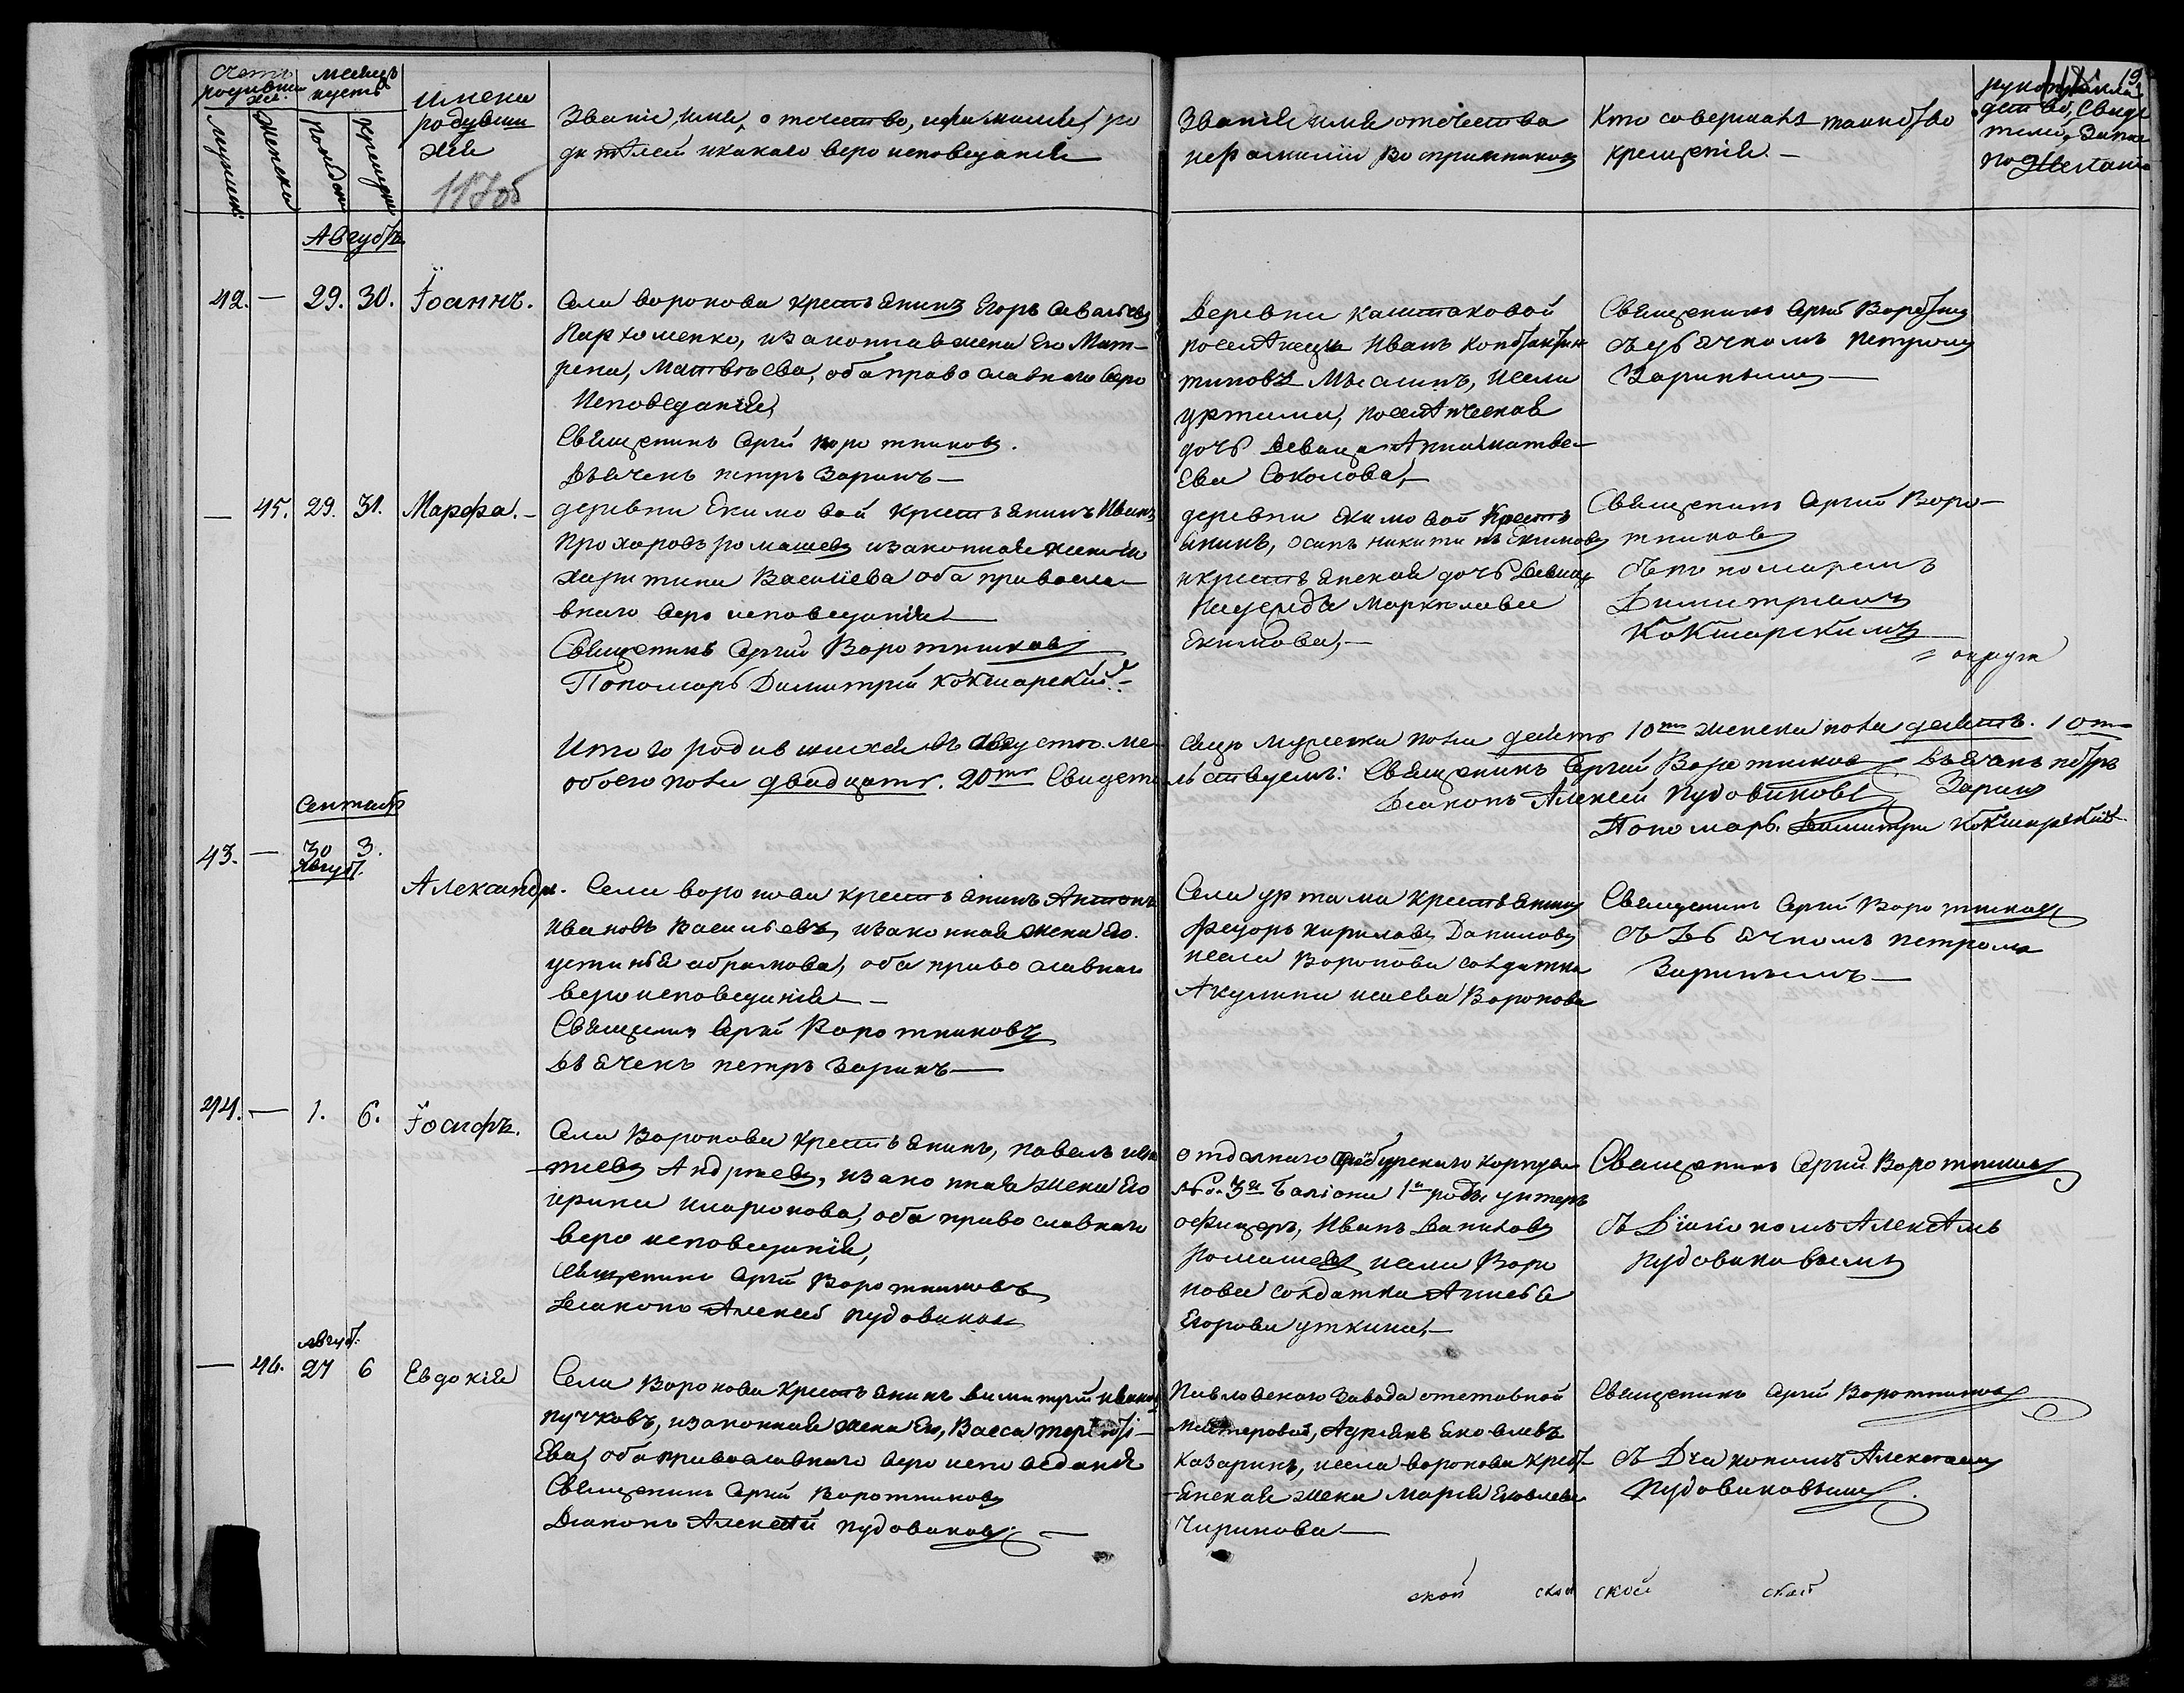 Счетъ родившихся.
месяцъ
мужеска
женска
рожден
крещен
Имена родувши хся
117об
Званіе, имя, отечество, ифамилия ро
дителей икакаго веро исповеданія
Званіе имя отечество
ифамилии Восприемниковъ
Кто совершалъ таинство
крещенія.
19
Августъ
42. — 29. 30. Іоаннъ.
Села воронова крестьянинъ Егоръ Савельевъ
Пархоменко, изаконная жена Его Мат-
рена, Матвѣева, оба православнаго веро
исповеданія,
Священикъ Сергий Воротниковъ.
Дьячекъ петръ Заринъ —
Деревни каштаковой
поселѣнецъ Иванъ Констан
тиновъ Мясинъ, исела
уртама, поселѣнческая
дочь девица Анна матве-
Ева Соколова, —
Священикъ Сергий
съ дьячкомъ петромъ
Заринымъ —
— 45. 29. 31. Марфа. —
деревни Екимовой крестьянинъ Иванъ
прохоровъ ромашевъ изаконная жена Его
харитина Василиева оба правосла-
внаго веро исповеданія —
Священикъ Сергий Воротниковъ
Пономарь Димитрий Кокшарский —
деревни Екимовой крестъ
янинъ, осипъ никитинъ Екимовъ
икрестьянская дочь девица
Надежда Маркилова
Екимова, —
Священикъ Сергий Воро-
тниковъ
съ пономаремъ
Димитриемъ
Кокшарскимъ
Итого родившихся въ августе ме-
сяце мужеска пола десять 10ть женска пола десять. 10ть
обоего пола двадцать. 20ть Свидете
льствуемъ: Священикъ Сергий Воротниковъ Дьячекъ петръ
Заринъ
Диаконъ Алексей Пудовиковъ
Пономарь. Димитри Кокшарский
Сентябр
43. — 30 3.
Август.
Александръ.
Села воронова крестьянинъ Антонъ
Ивановъ Васильевъ, изаконная жена Его.
устинья абрамова, оба православнаго
вероисповеданія —
Священикъ Сергий Воротниковъ
Дьячекъ петръ Заринъ —
Села уртама крестьянинъ
федоръ кириловъ Даниловъ
исела Воронова солдатка
Акулина исаева Воронова
Священикъ Сергий Воротниковъ
съ Дьячкомъ петромъ
Заринымъ —
44. — 1. 6. Іосифъ.
Села Воронова крестьянинъ, павелъ игна
тиевъ Андреевъ, изаконная жена Его
ирина иларионова, оба православнаго
веро исповеданія,
священикъ Сергий Воротниковъ
Диаконъ Алексей пудовиковъ
отдѣлнаго корпуса
№ 3й Баталіона 1й роты унтеръ
офицеръ, Иванъ Даниловъ
ромашевъ, исела Воро
нова солдатка Анисья
Егорова уткина, —
Священикъ Сергий Воротниковъ
съ Диакономъ Алексѣемъ
пудовиковымъ
— 46. Август. 27 6 Евдокія
Села Воронова крестьянинъ димитрий ивановъ
пучковъ, изаконная жена Его, Васса терентьі-
Ева, оба православнаго веро исповеданія
Священикъ Сергий Воротниковъ
Диаконъ Алексей пудовиковъ. —
Павловскаго завода отставной
мастеровой, Адриянъ Яковлевъ
Казаринъ, исела воронова крест
янская жена Мария Яковлева
Чиринова —
Священикъ Сергий Воротниковъ
съ Диакономъ Алексеемъ
Пудовиковымъ.
ской ской ской ской